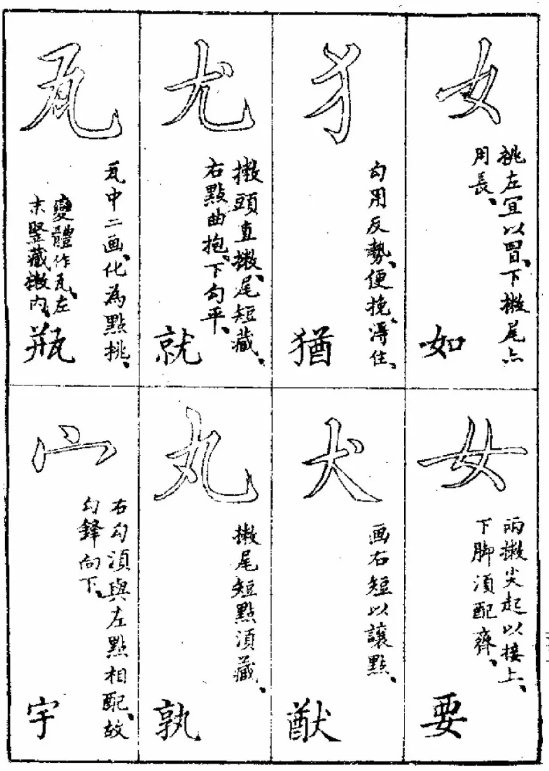 女
挑左宜以冒、下撇尾点
用長、
如
犭
勾用反勢、便挽得住、
猶
尤
撇頭直撇、尾短藏、
右點曲抱、下勾平、
就
瓦
瓦中二画、化為點挑、
變體作瓦、左
末竪藏撇內、
瓶
女
兩撇尖起以接上、
下脚須配齊、
要
犬
画右短以讓點、
猷
丸
撇尾短點須藏、
孰
宀
右勾須與左點相配、故
勾鋒向下、
宇